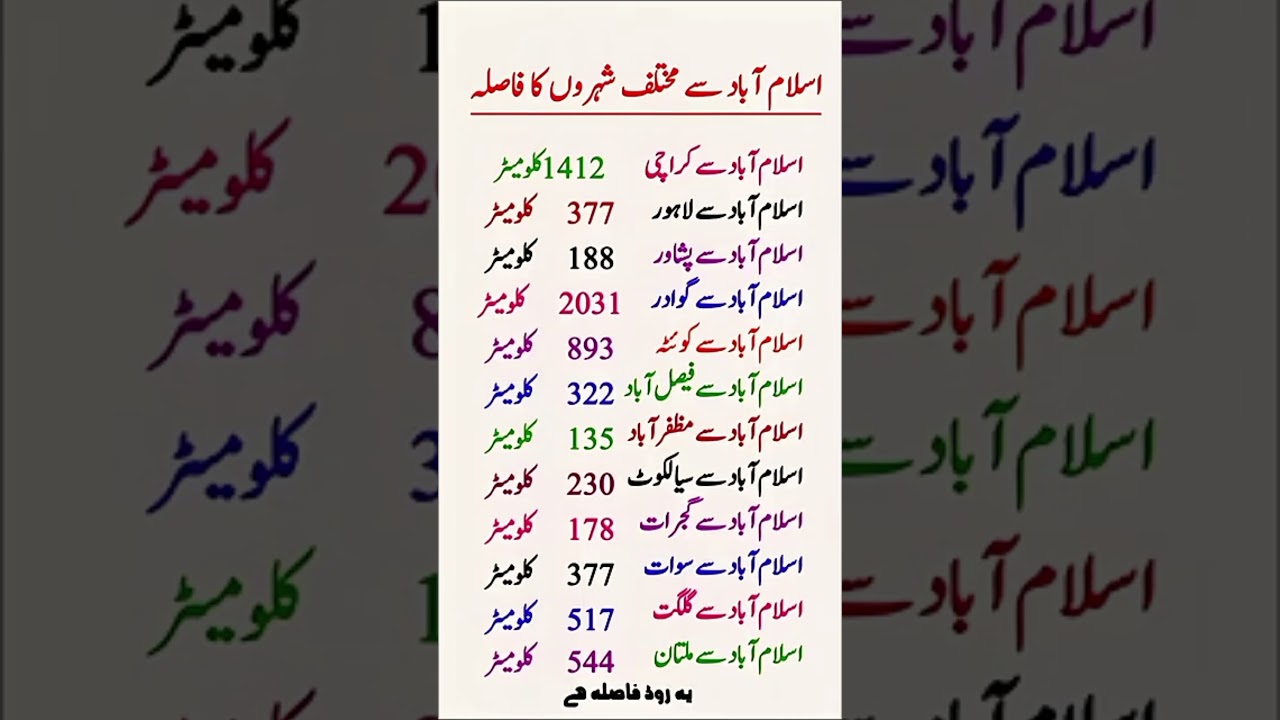 اسلام آباد سے مختلف شہروں کا فاصلہ
اسلام آباد سے کراچی 1412 کلومیٹر
اسلام آباد سے لاہور 377 کلومیٹر
اسلام آباد سے پشاور 188 کلومیٹر
اسلام آباد سے گوادر 2031 کلومیٹر
اسلام آباد سے کوئٹہ 893 کلومیٹر
اسلام آباد سے فیصل آباد 322 کلومیٹر
اسلام آباد سے مظفر آباد 135 کلومیٹر
اسلام آباد سے سیالکوٹ 230 کلومیٹر
اسلام آباد سے گجرات 178 کلومیٹر
اسلام آباد سے سوات 377 کلومیٹر
اسلام آباد سے گلگت 517 کلومیٹر
اسلام آباد سے ملتان 544 کلومیٹر
یہ روڈ فاصلہ ہے